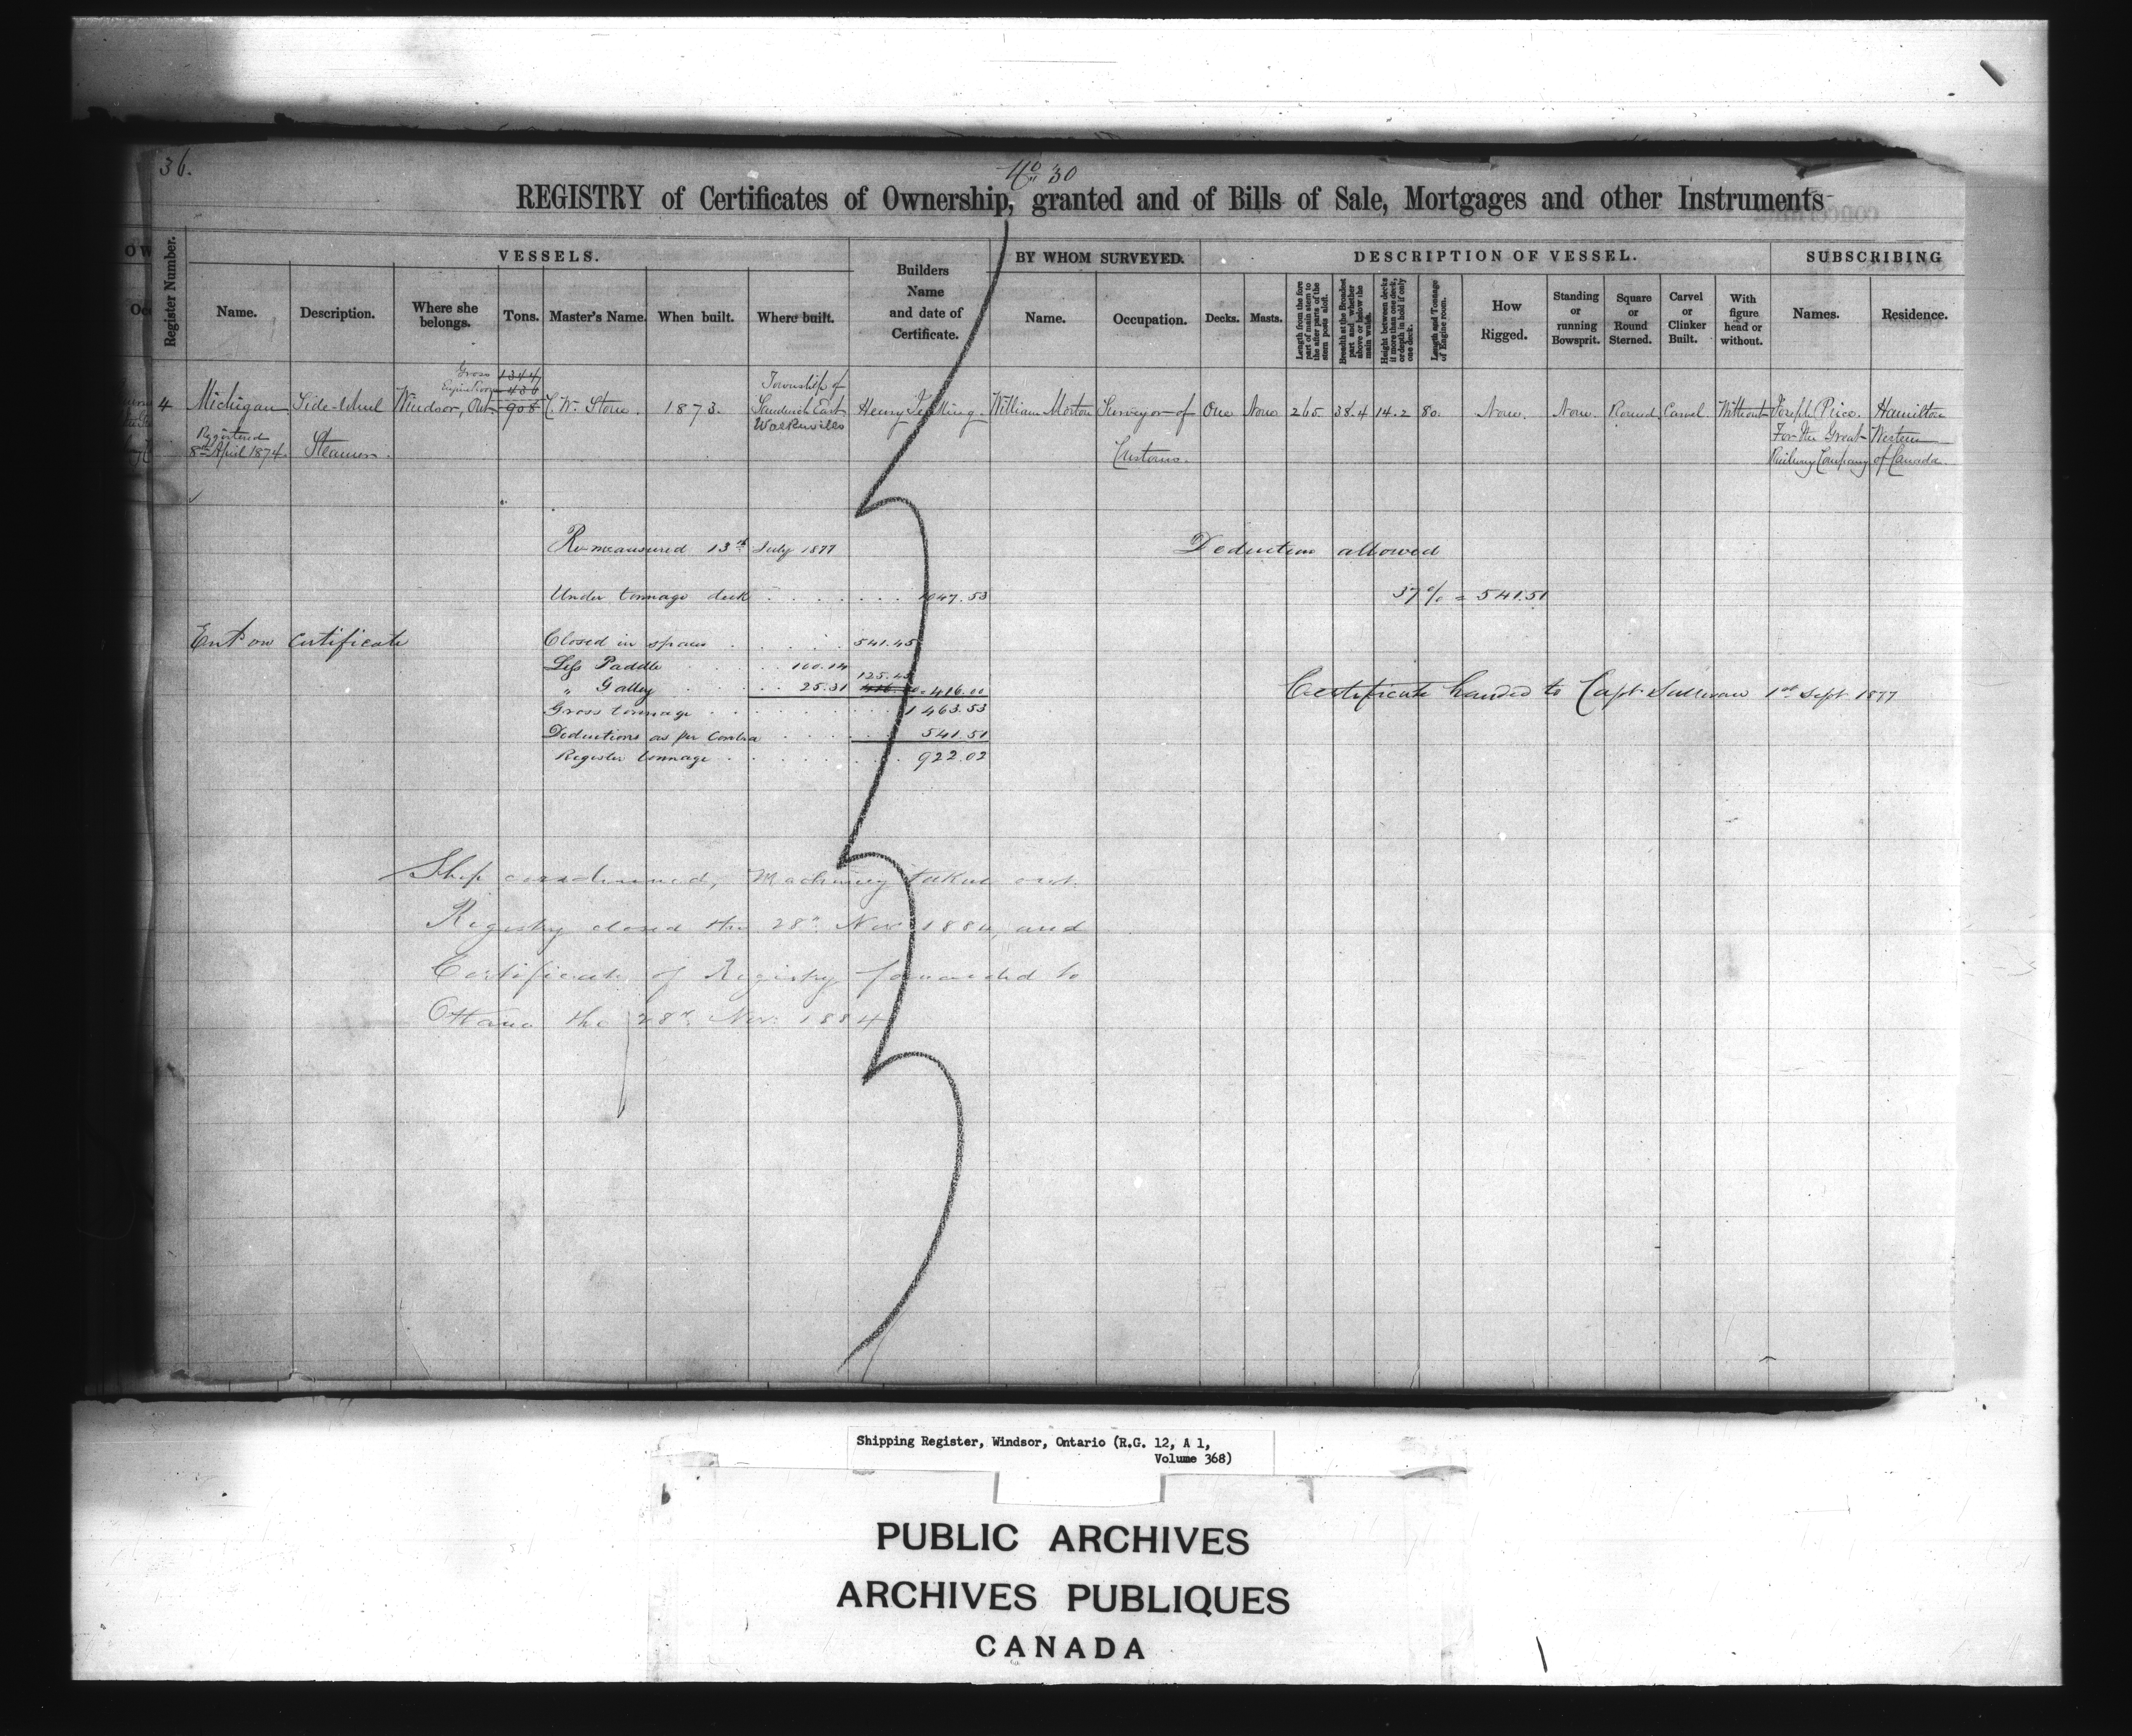 36.
No 30
REGISTRY of Certificates of Ownership, granted and of Bills of Sale, Mortgages and other Instruments
Register Number.
VESSELS.
Name.
Description.
Where she belongs.
Tons.
Master's Name.
When built.
Where built.
Builders Name and date of Certificate.
BY WHOM SURVEYED.
Name.
Occupation.
DESCRIPTION OF VESSEL.
Decks.
Masts.
Length from the fore part of main stem to the after part of the stern post aloft.
Breadth at the Broadest part and whether above or below the main wales.
Height between decks if more than one deck, or depth in hold if only one deck.
Length and Tonnage of Engine room.
How Rigged.
Standing or running Bowsprit.
Square or Round Sterned.
Carvel or Clinker Built.
With figure head or without.
SUBSCRIBING
Names.
Residence.
Gross 1344
Engine Room 436
4 Michigan Side-Wheel Windsor, Ont 908 C. W. Stone. 1873. Township of Sandwich East Walkerville Henry William Morton Surveyor of One None 265. 38.4 14.2 80. None. None. Round Carvel Without Joseph Price. Hamilton
Registered 8th April 1874. Steamer. Customs. For the Great Western
Railway Company of Canada.
Re-measured 13th July 1877
Deduction allowed
Under tonnage deck 1047.53
37 % = 541.51
Ent on Certificate
Closed in spaces 541.45
Less Paddle 100.14
" Galley 25.31 125.45 416.00
Certificate handed to Capt Sullivan 1st Sept 1877
Gross tonnage 1463.53
Deductions as per Contra 541.51
Register tonnage 922.02
Ship condemned, Machinery taken out.
Registry closed the 28th Nov 1884, and
Certificate of Registry forwarded to
Ottawa the 28th Nov. 1884
Shipping Register, Windsor, Ontario (R.G. 12, A 1,
Volume 368)
PUBLIC ARCHIVES
ARCHIVES PUBLIQUES
CANADA